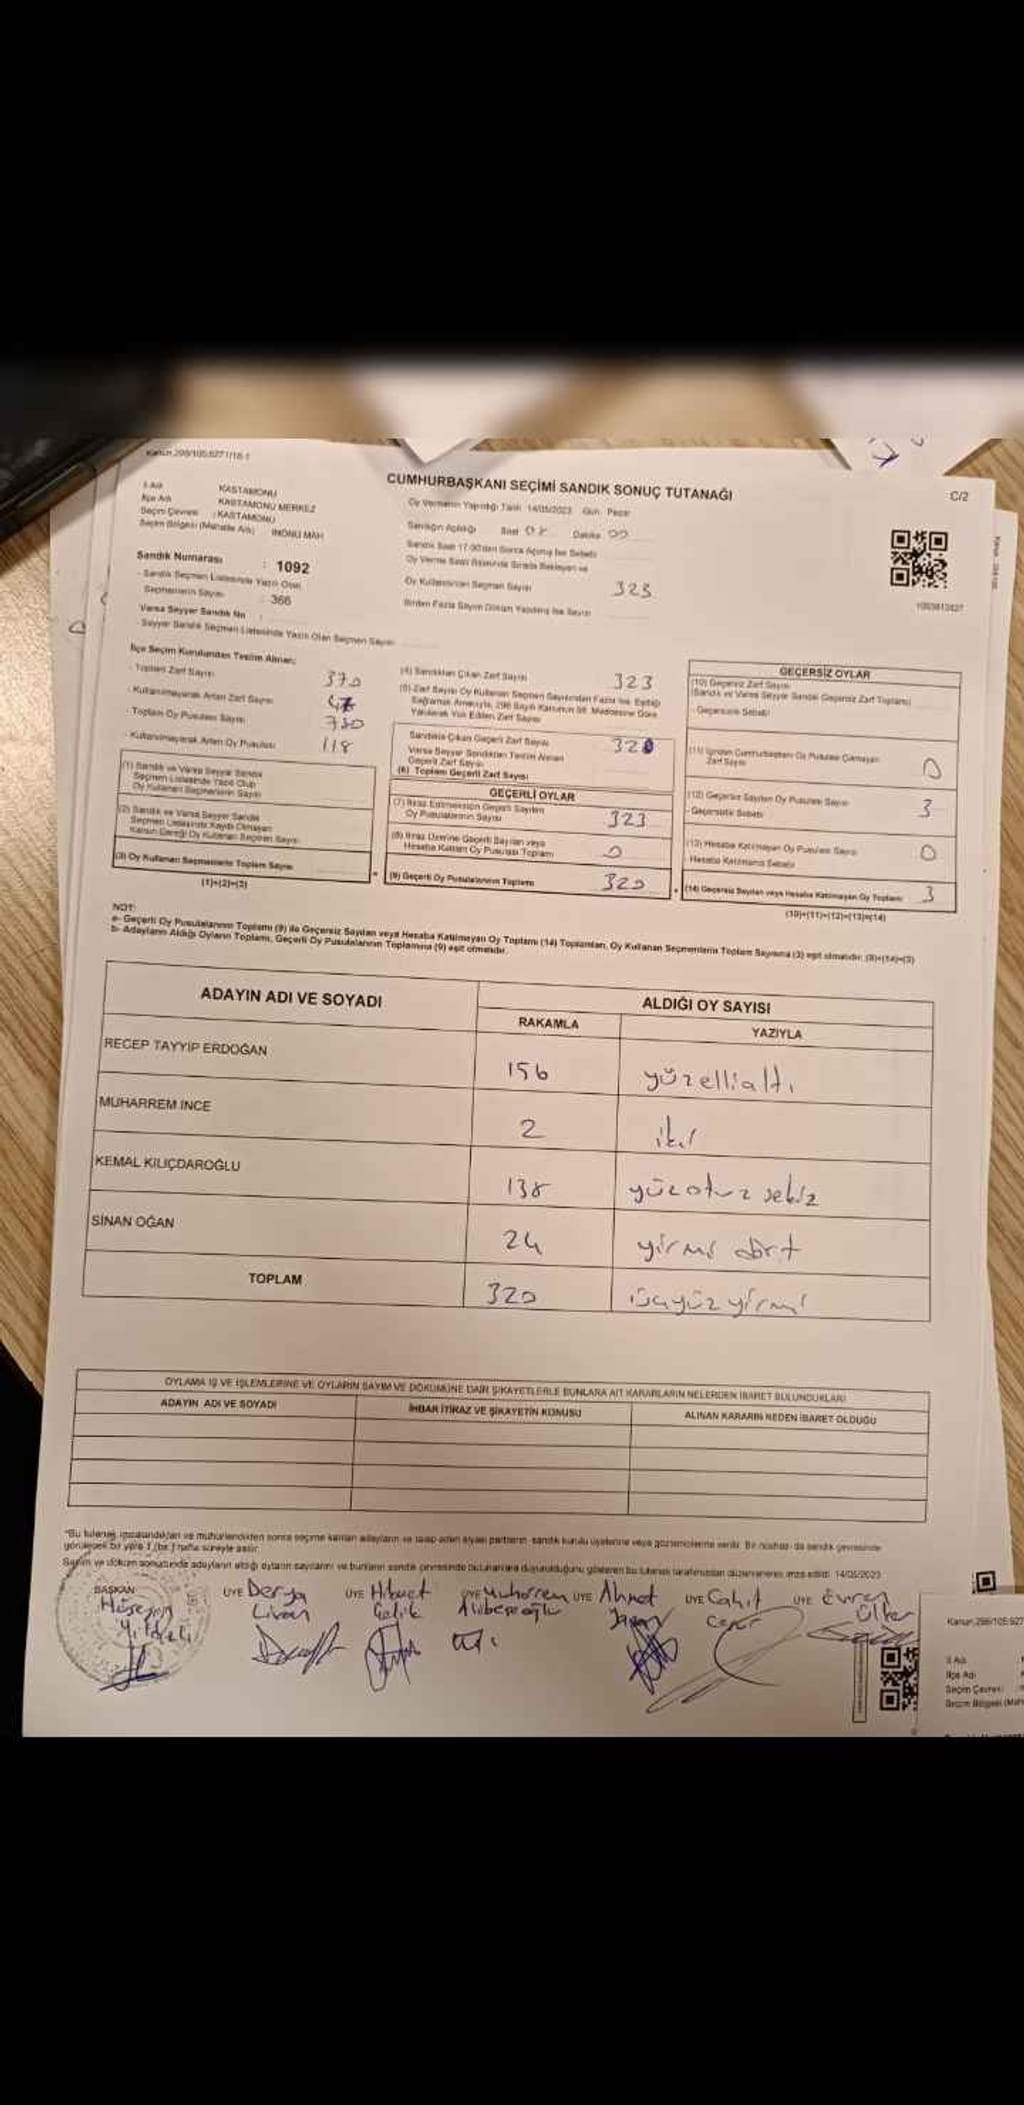 Kanun 298/105;6271/18-1
CUMHURBAŞKANI SEÇİMİ SANDIK SONUÇ TUTANAĞI
C/2
İl Adı KASTAMONU
İlçe Adı KASTAMONU MERKEZ
Seçim Çevresi : KASTAMONU
Seçim Bölgesi (Mahalle Adı) İNÖNÜ MAH
Sandık Numarası : 1092
- Sandık Seçmen Listesinde Yazılı Olan
Seçmenlerin Sayısı : 366
Varsa Seyyar Sandık No :
Seyyar Sandık Seçmen Listesinde Yazılı Olan Seçmen Sayısı
Oy Vermenin Yapıldığı Tarih 14/05/2023 Gün Pazar
Sandığın Açıldığı Saat 08 Dakika 00
Sandık Saat 17.00'den Sonra Açılmış İse Sebebi
Oy Verme Saati Bitiminde Sırada Bekleyen ve
Oy Kullandırılan Seçmen Sayısı 323
Birden Fazla Sayım Döküm Yapılmış İse Sayısı
İlçe Seçim Kurulundan Teslim Alınan:
- Toplam Zarf Sayısı 370
- Kullanılmayarak Artan Zarf Sayısı 47
- Toplam Oy Pusulası Sayısı
- Kullanılmayarak Artan Oy Pusulası 118
(1) Sandık ve Varsa Seyyar Sandık
Seçmen Listesinde Yazılı Olup
Oy Kullanan Seçmenlerin Sayısı
(2) Sandık ve Varsa Seyyar Sandık
Seçmen Listesinde Kaydı Olmayan
Kanun Gereği Oy Kullanan Seçmen Sayısı
(3) Oy Kullanan Seçmenlerin Toplam Sayısı
(1)+(2)=(3)
(4) Sandıktan Çıkan Zarf Sayısı 323
(5) Zarf Sayısı Oy Kullanan Seçmen Sayısından Fazla İse, Eşitliği
Sağlamak Amacıyla, 298 Sayılı Kanunun 98. Maddesine Göre
Yakılarak Yok Edilen Zarf Sayısı
Sandıkta Çıkan Geçerli Zarf Sayısı 320
Varsa Seyyar Sandıktan Teslim Alınan
Geçerli Zarf Sayısı
(6) Toplam Geçerli Zarf Sayısı
GEÇERLİ OYLAR
(7) İtiraz Edilmeksizin Geçerli Sayılan
Oy Pusulalarının Sayısı 323
(8) İtiraz Üzerine Geçerli Sayılan veya
Hesaba Katılan Oy Pusulası Toplamı 0
(9) Geçerli Oy Pusulalarının Toplamı 320
GEÇERSİZ OYLAR
(10) Geçersiz Zarf Sayısı
(Sandık ve Varsa Seyyar Sandık Geçersiz Zarf Toplamı)
- Geçersizlik Sebebi
(11) İçinden Cumhurbaşkanı Oy Pusulası Çıkmayan
Zarf Sayısı 0
(12) Geçersiz Sayılan Oy Pusulası Sayısı 3
- Geçersizlik Sebebi
(13) Hesaba Katılmayan Oy Pusulası Sayısı 0
- Hesaba Katılmama Sebebi
(14) Geçersiz Sayılan veya Hesaba Katılmayan Oy Toplamı 3
(10)+(11)+(12)+(13)=(14)
NOT:
a- Geçerli Oy Pusulalarının Toplamı (9) ile Geçersiz Sayılan veya Hesaba Katılmayan Oy Toplamı (14) Toplamları, Oy Kullanan Seçmenlerin Toplam Sayısına (3) eşit olmalıdır. (9)+(14)=(3)
b- Adayların Aldığı Oyların Toplamı, Geçerli Oy Pusulalarının Toplamına (9) eşit olmalıdır.
ADAYIN ADI VE SOYADI ALDIĞI OY SAYISI
RAKAMLA YAZIYLA
RECEP TAYYİP ERDOĞAN 156 yüzellialtı
MUHARREM İNCE 2 iki
KEMAL KILIÇDAROĞLU 138 yüzotuz sekiz
SİNAN OĞAN 24 yirmi dört
TOPLAM 320 üçyüz yirmi
OYLAMA İŞ VE İŞLEMLERİNE VE OYLARIN SAYIM VE DÖKÜMÜNE DAİR ŞİKAYETLERLE BUNLARA AİT KARARLARIN NELERDEN İBARET BULUNDUKLARI
ADAYIN ADI VE SOYADI İHBAR İTİRAZ VE ŞİKAYETİN KONUSU ALINAN KARARIN NEDEN İBARET OLDUĞU
"Bu tutanak imzalandıktan ve mühürlendikten sonra seçime katılan adayların ve talep eden siyasi partilerin sandık kurulu üyelerine veya gözlemcilerine verilir. Bir nüshası da sandık çevresinde
görülecek bir yere 1 (bir) hafta süreyle asılır.
Sayım ve döküm sonucunda adayların aldığı oyların sayılarını ve bunların sandık çevresinde bulunanlara duyurulduğunu gösteren bu tutanak tarafımızdan düzenlenerek imza edildi. 14/05/2023
BAŞKAN ÜYE Derya ÜYE Hikmet ÜYE Muharrem ÜYE Ahmet ÜYE Cahit ÜYE Evren
Hüseyin Livan Çelik Alibeseoğlu Ülker
Kanun 298/105;627
İl Adı
İlçe Adı
Seçim Çevresi
Seçim Bölgesi (Mah